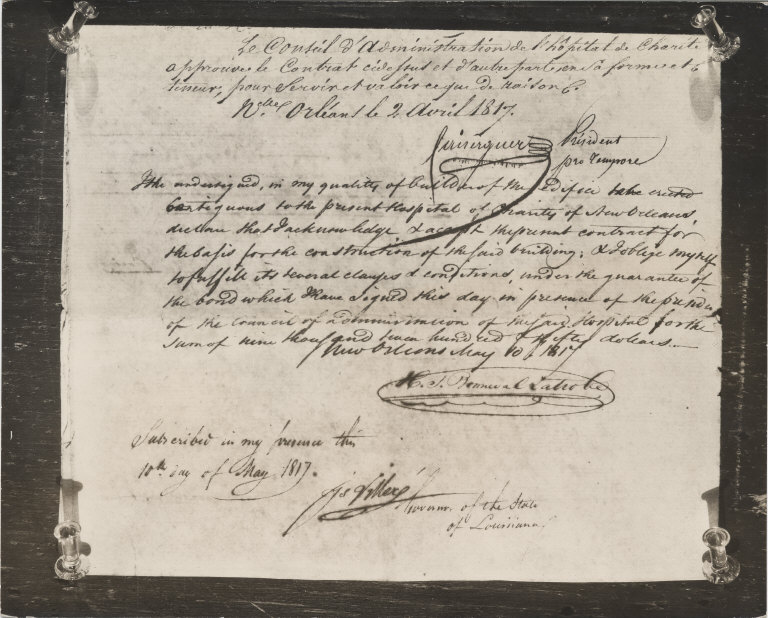 Le Conseil d'Administration de l'hôpital de Charité
approuve le Contrat cidessus et d'autre part, en sa forme et
teneur, pour servir et valoir ce que de raison &.
Nlle Orléans le 2 Avril 1817.
Président
pro tempore
I the undersigned, in my quality of builder of the Edifice to be erected
contiguous to the present Hospital of Charity of New Orleans,
declare that I acknowledge & accept the present contract for
the basis for the construction of the said building; & I oblige myself
to fulfill its several clauses & conditions, under the guarantee of
the bond which I have signed this day in presence of the president
of the Council of administration of the said Hospital for the
sum of nine thousand seven hundred & fifty dollars.
New Orleans May 10, 1817
H. S. Bonneval Latrobe
Subscribed in my presence this
10th day of May 1817.
Js Villeré
Governor of the State
of Louisiana.